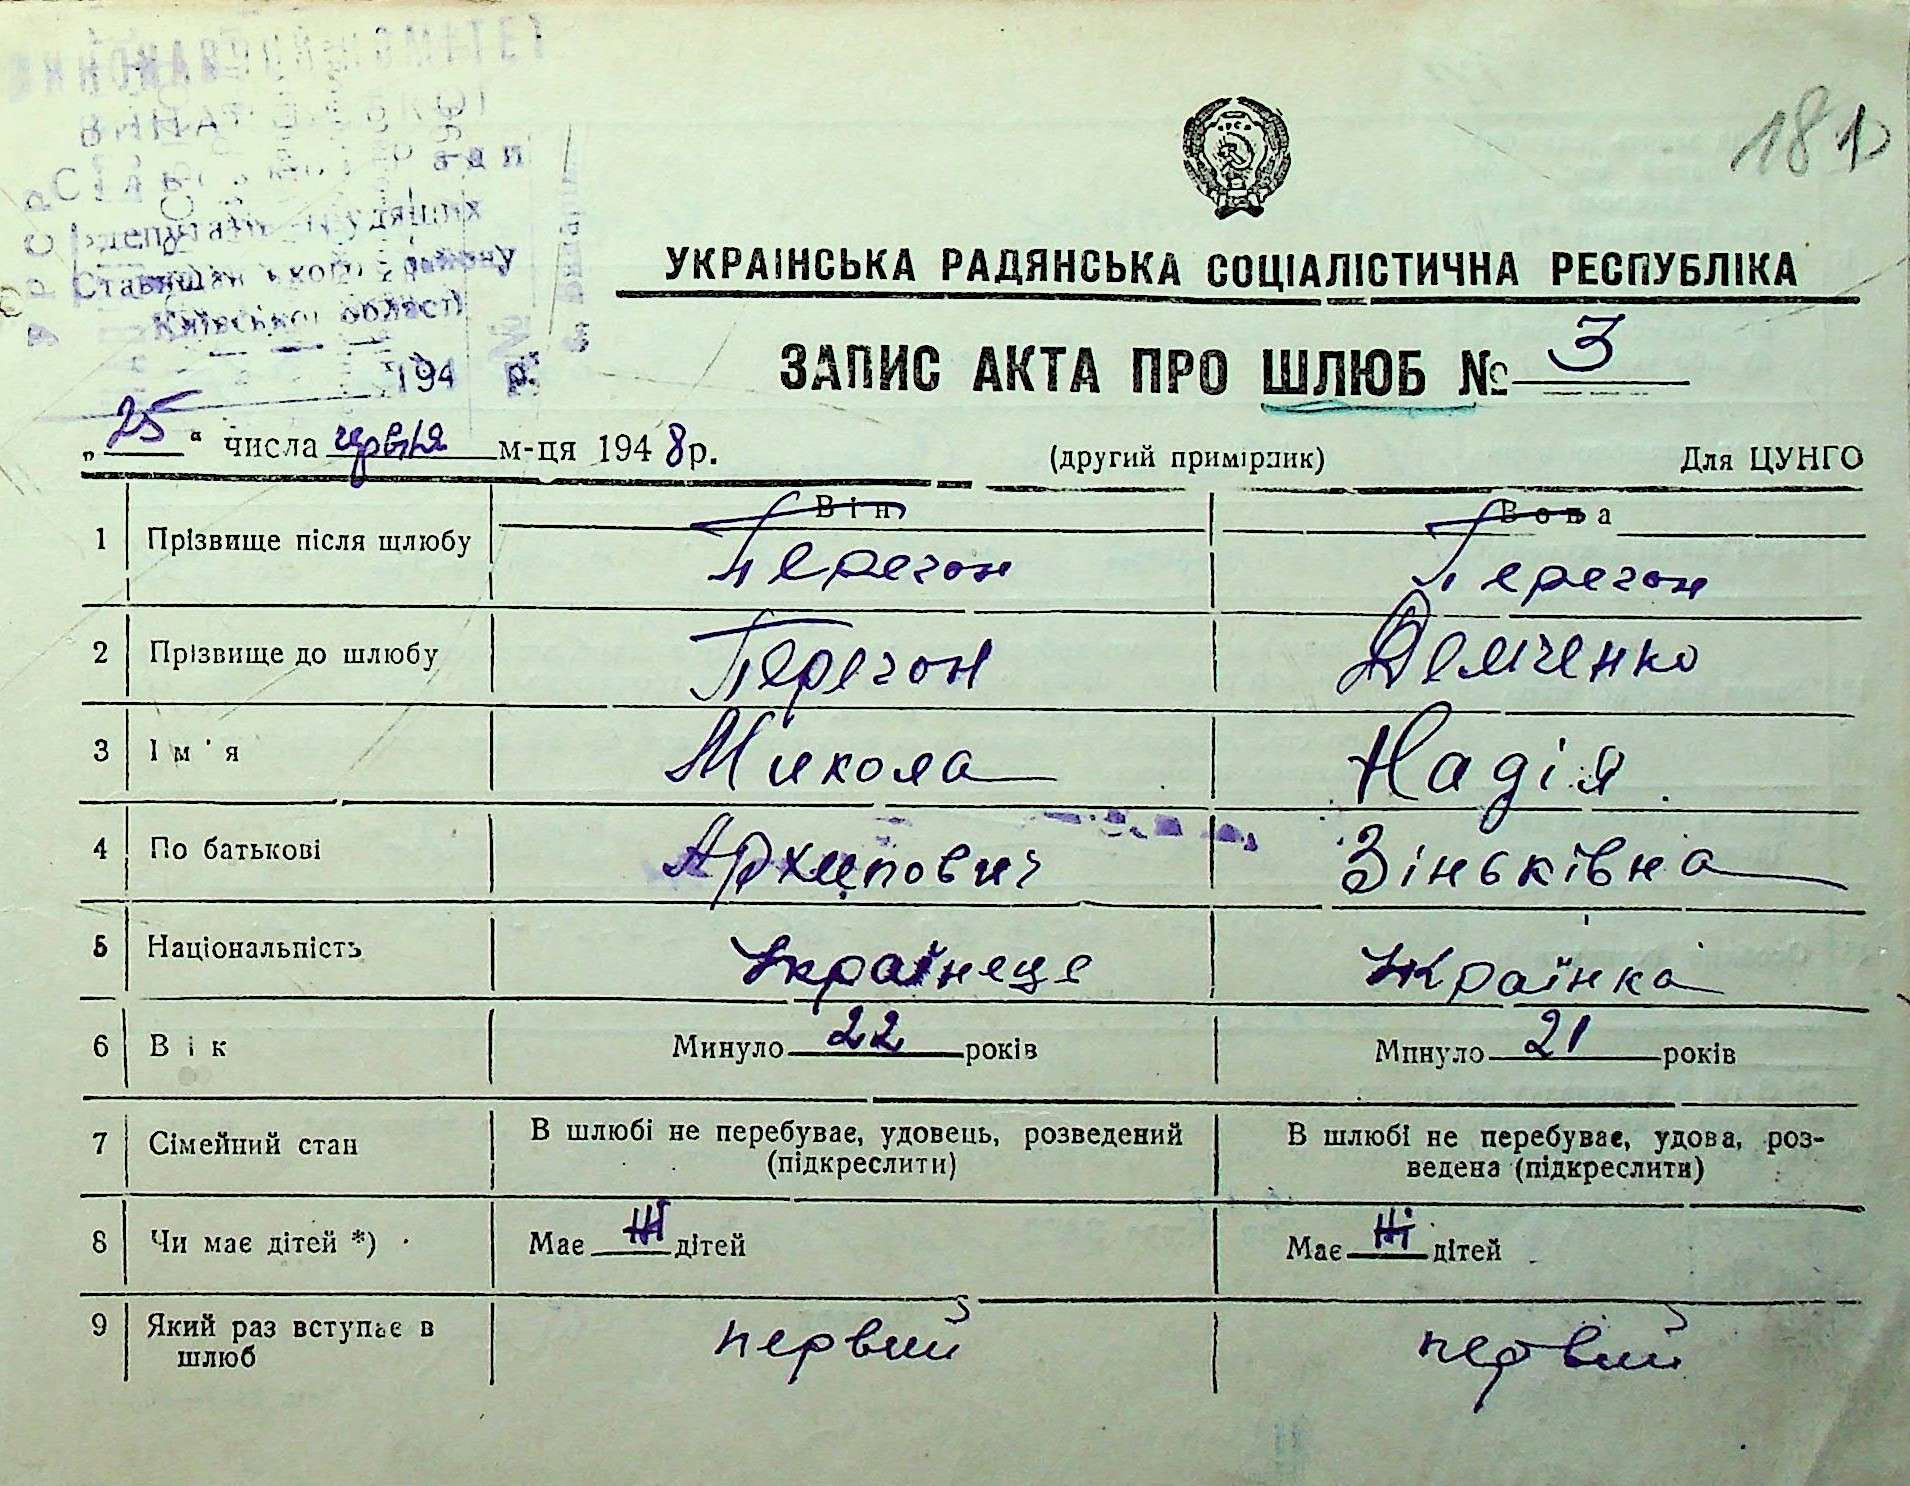 181
депутатів трудящих
Ставищанського району
Київської області
194 р.
УКРАЇНСЬКА РАДЯНСЬКА СОЦІАЛІСТИЧНА РЕСПУБЛІКА
ЗАПИС АКТА ПРО ШЛЮБ № 3
„25“ числа червня м-ця 1948 р. (другий примірник) Для ЦУНГО
Він Вона
1 Прізвище після шлюбу Перегон Перегон
2 Прізвище до шлюбу Перегон Демченко
3 Ім'я Микола Надія
4 По батькові Архипович Зіньківна
5 Національність Українець Українка
6 Вік Минуло 22 років Минуло 21 років
7 Сімейний стан В шлюбі не перебуває, удовець, розведений В шлюбі не перебуває, удова, роз-
(підкреслити) ведена (підкреслити)
8 Чи має дітей *) Має Ні дітей Має Ні дітей
9 Який раз вступає в первий первий
шлюб